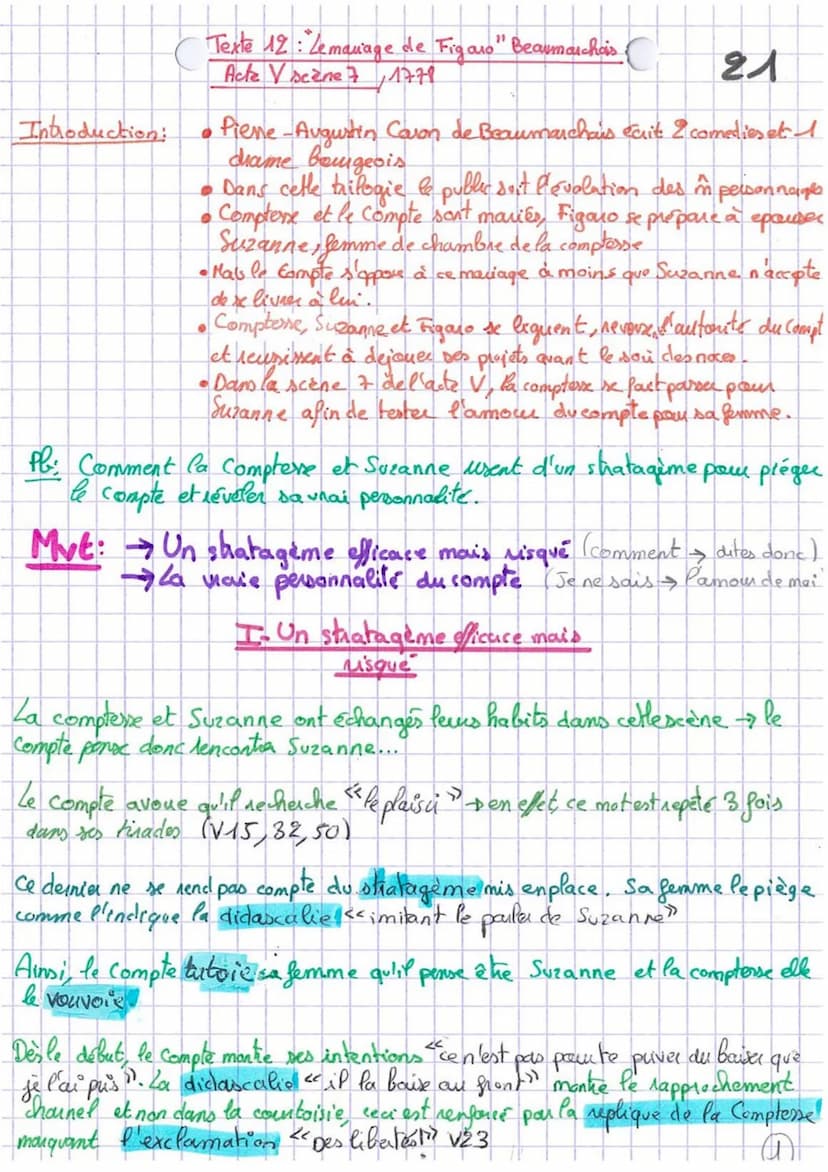 Texte 12 : "Le mariage de Figaro" Beaumarchais
Acte V scène 7 , 1778
21
Introduction : • Pierre-Augustin Caron de Beaumarchais écrit 2 comedies et 1
drame bourgeois
• Dans cette trilogie le public suit l'évolation des m̂ personnages
• Comptesse et le Compte sont mariés, Figaro se prépare à epouser
Suzanne, femme de chambre de la comptesse
• Mais le Compte s'oppose à ce mariage à moins que Suzanne n'accepte
de se livrer à lui.
• Comptesse, Suzanne et Figaro se liguent, l'autorité du Compt
et reussissent à dejouer ses projets avant le soir des noces.
• Dans la scène 7 de l'acte V, la comptesse se fait passer pour
Suzanne afin de tester l'amour du compte pour sa femme.
Pb: Comment la Comptesse et Suzanne usent d'un stratagème pour piéger
le Compte et révéler sa vrai personnalité.
Mvt: → Un stratagème efficace mais risqué (comment → dites donc)
→ La vraie personnalité du compte (Je ne sais → l'amour de moi
I- Un stratagème efficace mais
risqué
La comptesse et Suzanne ont échangés leurs habits dans cette scène → le
Compte pense donc rencontrer Suzanne...
Le Compte avoue qu'il recherche « le plaisir » → en effet, ce mot est repété 3 fois
dans ses tirades (V15, 32, 50)
Ce dernier ne se rend pas compte du stratagème mis en place. Sa femme le piège
comme l'indique la didascalie « imitant le parler de Suzanne »
Ainsi, le Compte tutoie sa femme qu'il pense être Suzanne et la comptesse elle
le vouvoie
Dès le début, le Compte montre ses intentions « ce n'est pas pour te priver du baiser que
je l'ai pris ». La didascalie « il la baise au front » montre le rapprochement
charnel et non dans la courtoisie, ceci est renforcé par la replique de la Comptesse
marquant l'exclamation « Des libertés! » V23
1